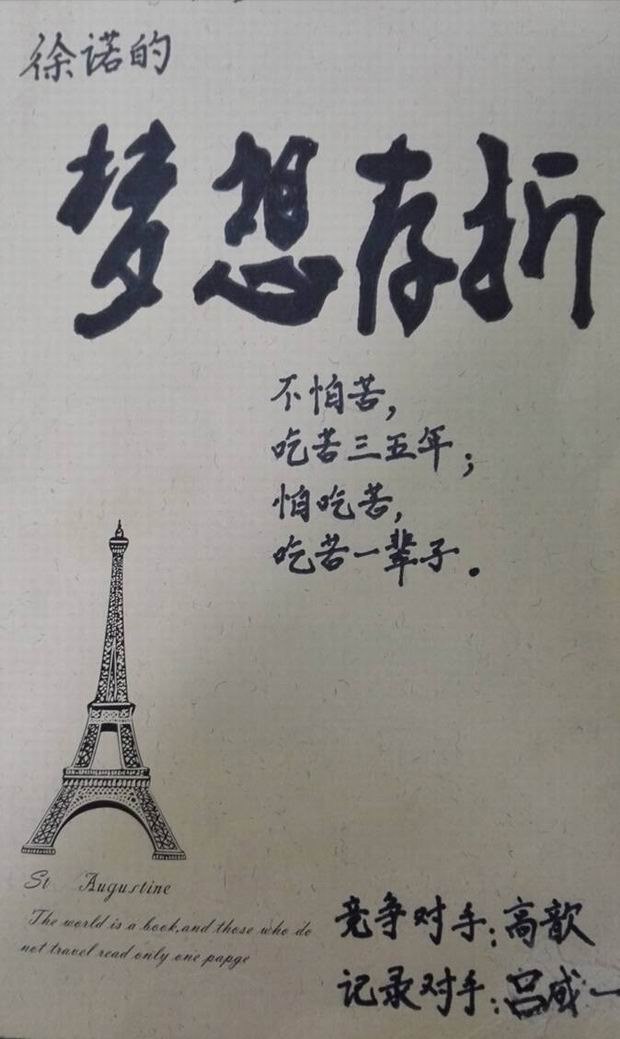 徐诺的
梦想存折
不怕苦，
吃苦三五年；
怕吃苦，
吃苦一辈子。
St Augustine
The world is a book,and those who do
not travel read only one papge
竞争对手：高歆
记录对手：吕威一